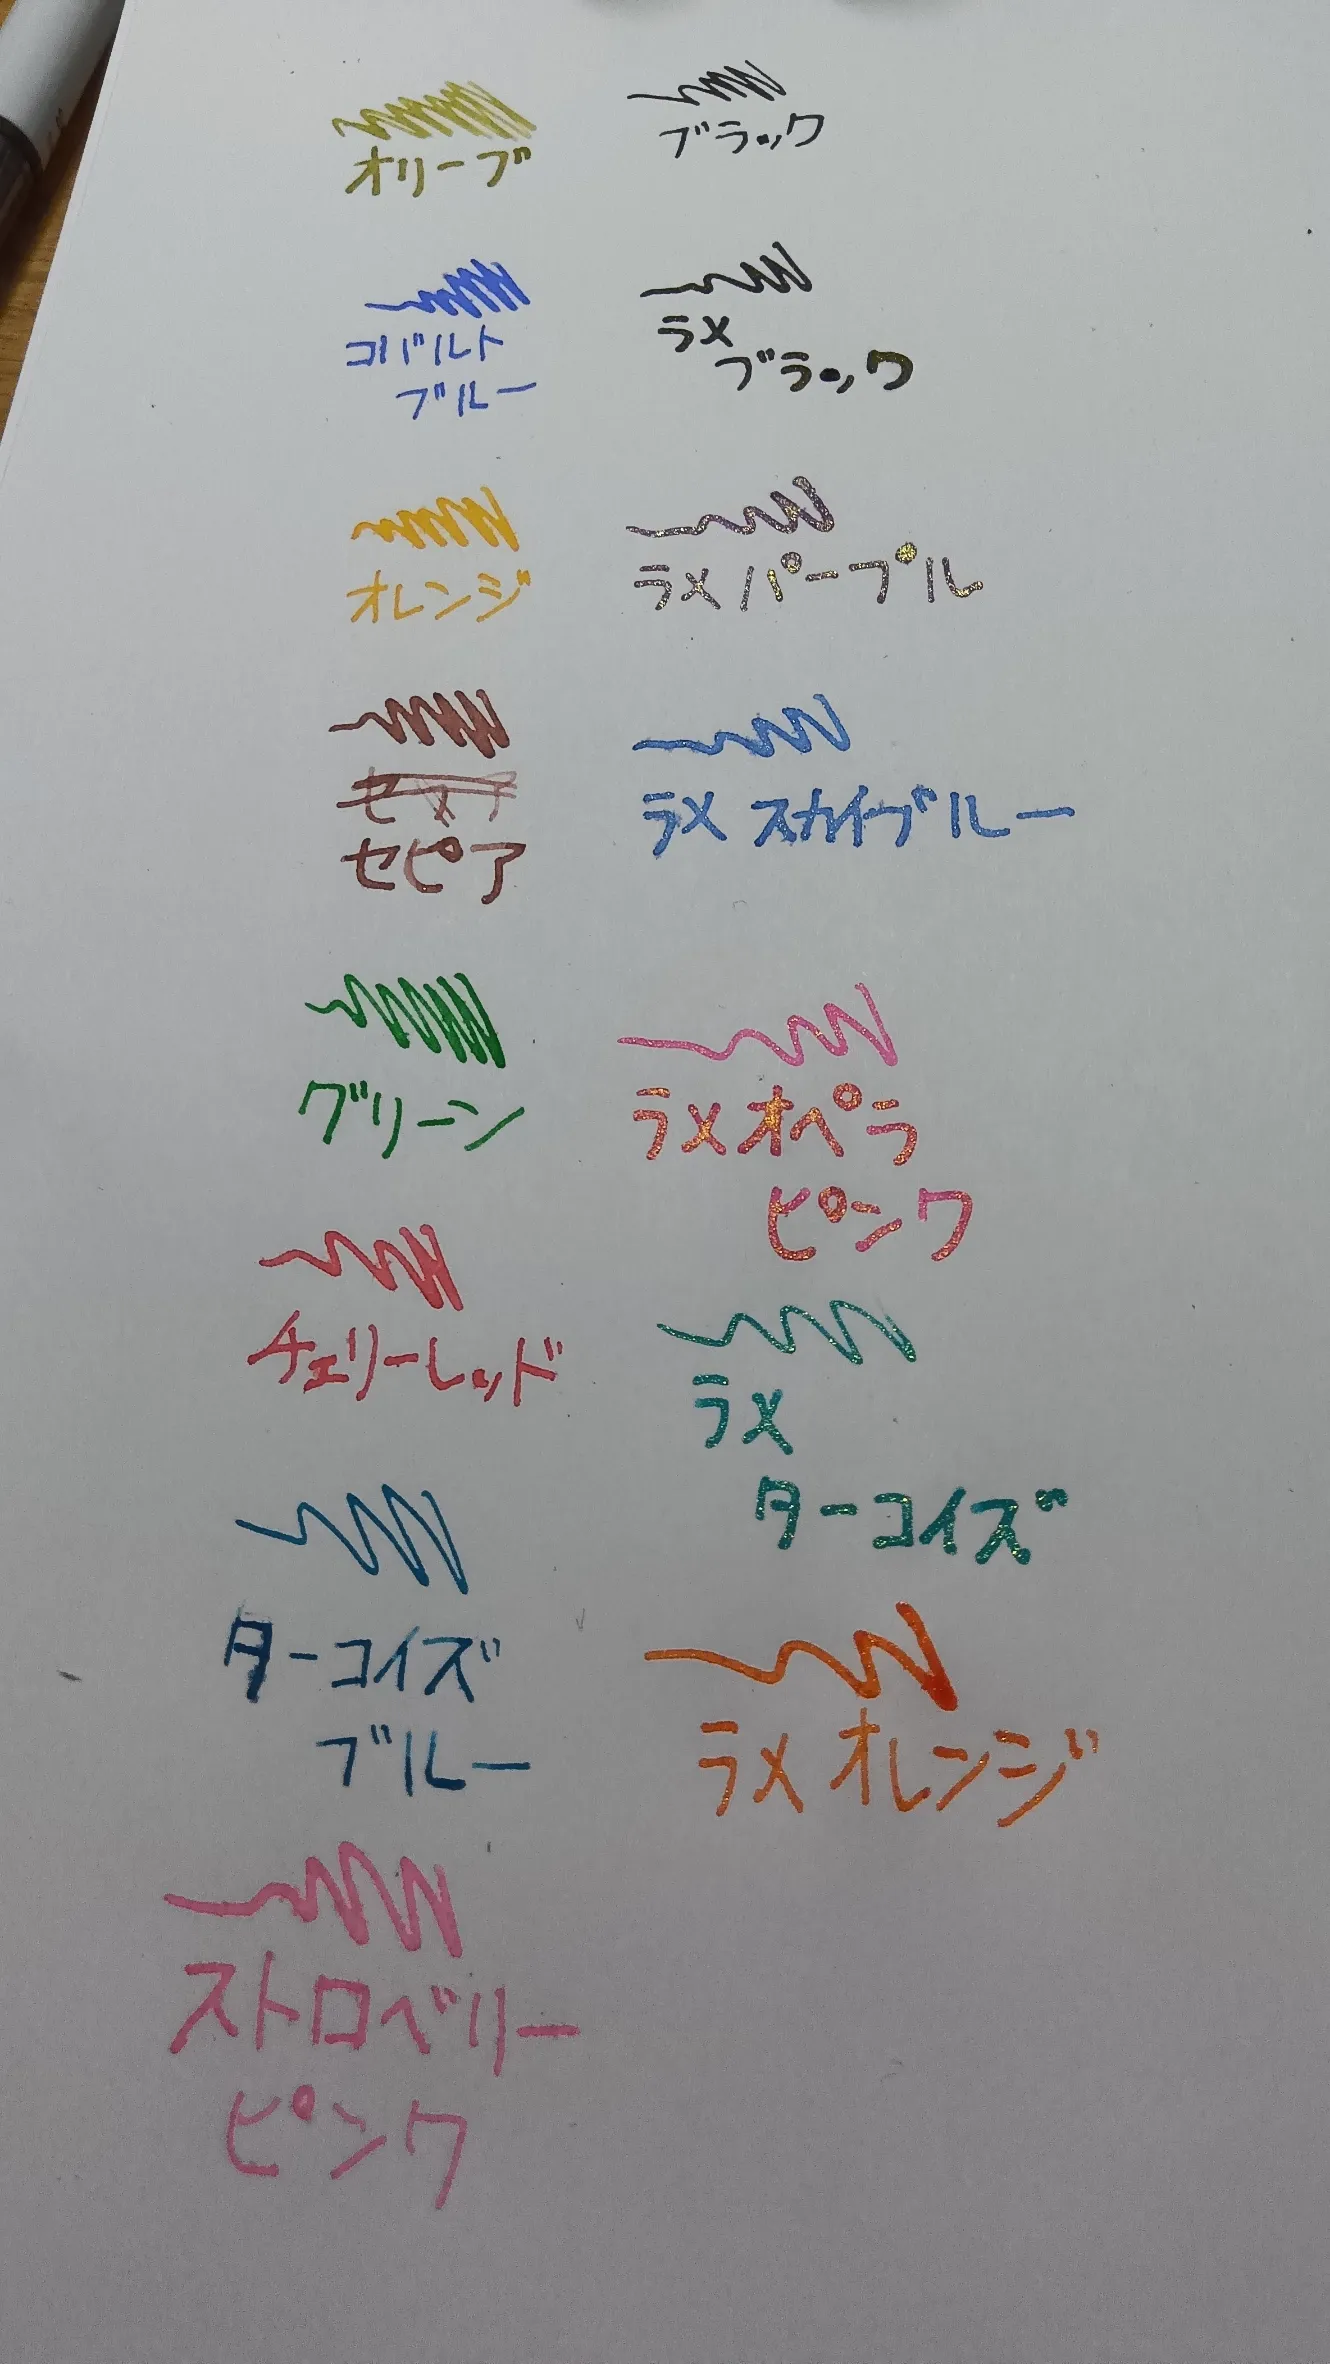 オリーブ
ブラック
コバルト
ブルー
ラメ
ブラック
オレンジ
ラメ パープル
セピア
ラメ スカイブルー
グリーン
ラメ オペラ
ピンク
チェリーレッド
ラメ
ターコイズ
ターコイズ
ブルー
ラメ オレンジ
ストロベリー
ピンク